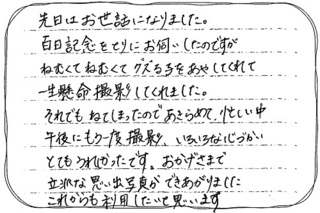 先日はお世話になりました。
百日記念をとりにお伺いしたのですが
ねむくてねむくてグズる子をあやしてくれて
一生懸命撮影してくれました。
それでもねてしまったのであきらめて、忙しい中
午後にもう一度撮影、いろいろな心づかい
とてもうれしかったです。おかげさまで
立派な思い出写真ができあがりました
これからも利用したいと思います